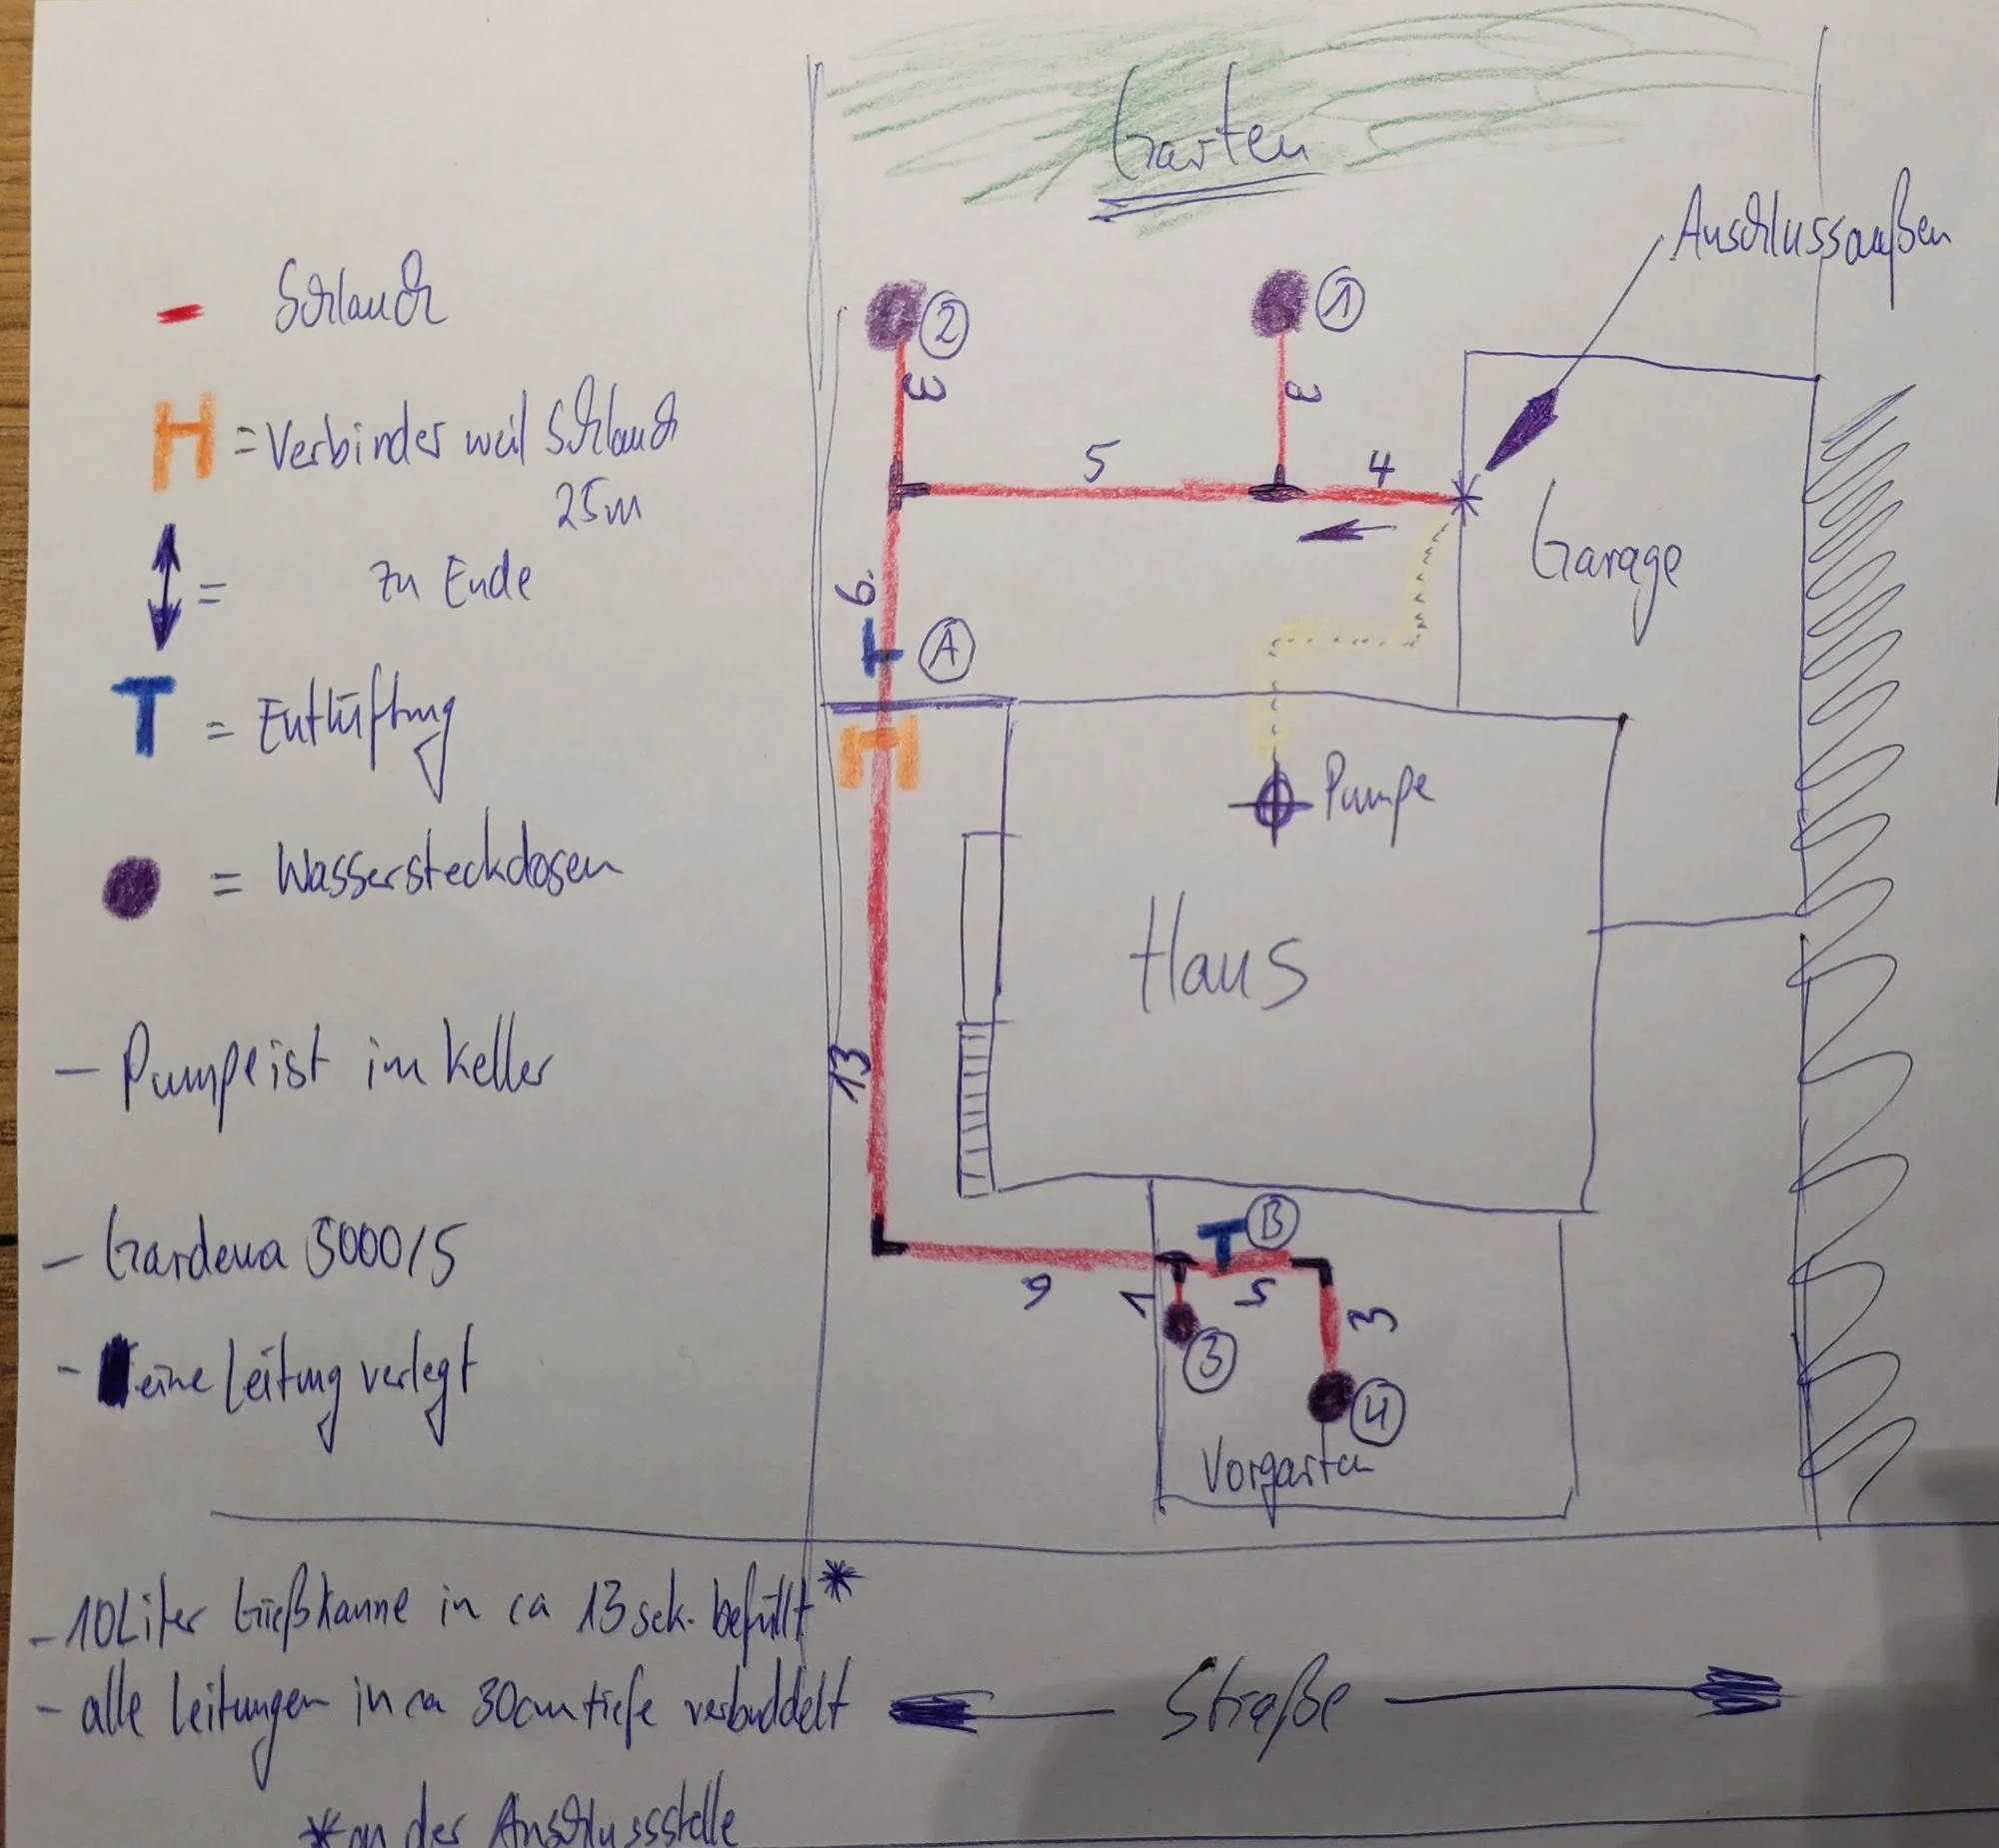 Garten
Anschlussaußen
Schlauch
H = Verbinder weil Schlauch
25m
= zu Ende
T = Entlüftung
= Wassersteckdosen
2
1
3
3
5
4
6
A
T
H
Garage
Pumpe
Haus
13
- Pumpe ist im Keller
- Gardena 5000/5
- eine Leitung verlegt
T
B
9
1
5
3
3
4
Vorgarten
- 10Liter Gießkanne in ca 13sek. befüllt*
- alle Leitungen in ca 30cm tiefe verbuddelt
Straße
*an der Anschlussstelle